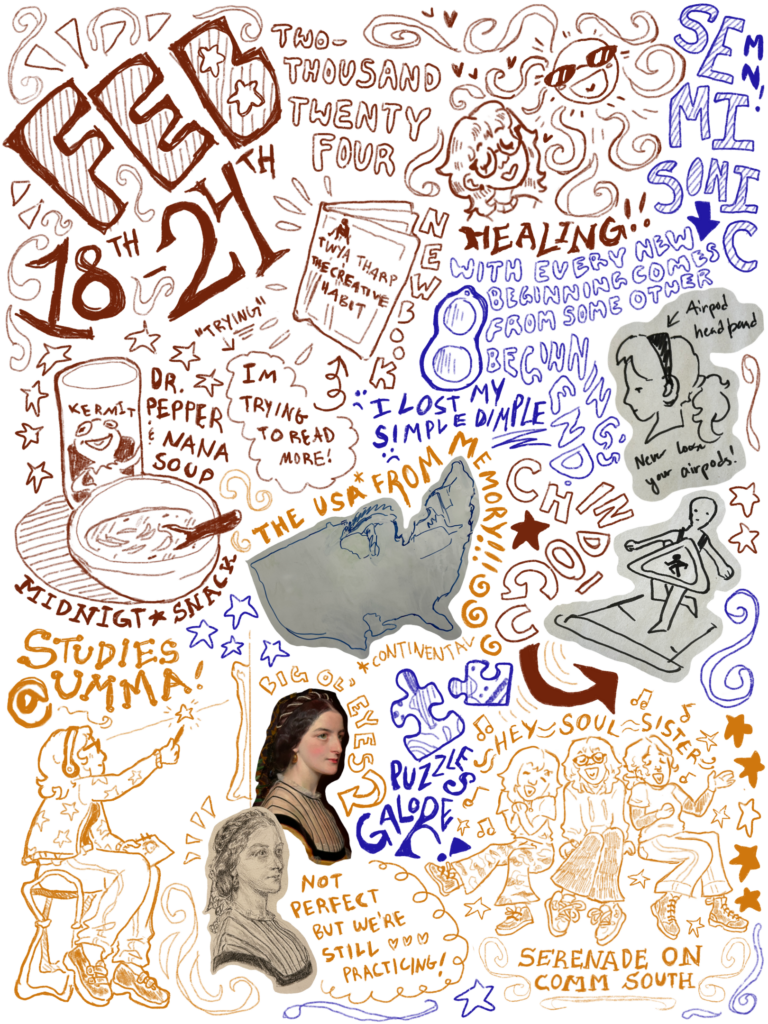 FEB
18TH - 24TH
TWO-
THOUSAND
TWENTY
FOUR
HEALING!!
SEMISONIC
MN!
WITH EVERY NEW
BEGINNING COMES
FROM SOME OTHER
BEGINNING'S
END.
NEW BOOK
TWYA THARP
THE CREATIVE
HABIT
"TRYING"
I'M
TRYING
TO READ
MORE!
I LOST MY
SIMPLE DIMPLE
Airpod
headband
Never loose
your airpods!
KERMIT
DR.
PEPPER
& NANA
SOUP
MIDNIGT ★ SNACK
THE USA* FROM MEMORY!!!
*CONTINENTAL
CHINDO
GU
STUDIES
@ UMMA!
BIG OL' EYES
PUZZLES
GALORE!
HEY~SOUL~SISTER
NOT
PERFECT
BUT WE'RE
STILL ♡♡♡
PRACTICING!
SERENADE ON
COMM SOUTH